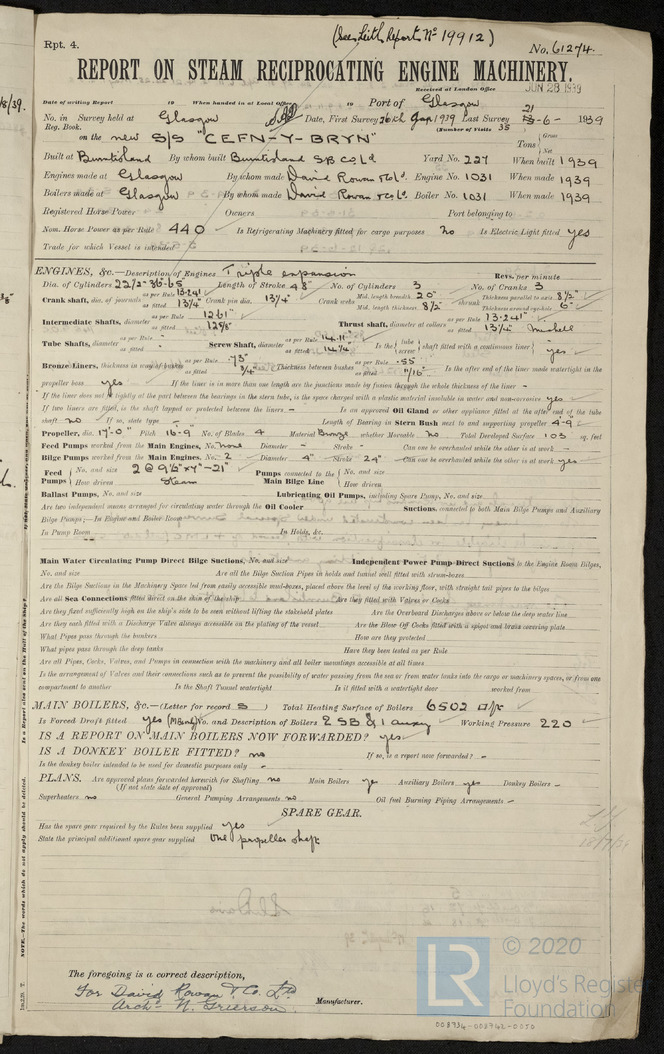 (See Leith Report No 19912)
Rpt. 4.
No. 61274.
REPORT ON STEAM RECIPROCATING ENGINE MACHINERY.
Received at London Office JUN 28 1939
Date of writing Report 19 When handed in at Local Office 19 Port of Glasgow
No. in Survey held at Glasgow Date, First Survey 26th Jan 1939 Last Survey 21-6-1939
Reg. Book. (Number of Visits 35
on the new S/S "CEFN-Y-BRYN" Tons Gross Net
Built at Burntisland By whom built Burntisland S.B. Co Ld Yard No. 227 When built 1939
Engines made at Glasgow By whom made David Rowan & Co Ld. Engine No. 1031 When made 1939
Boilers made at Glasgow By whom made David Rowan & Co Ld. Boiler No. 1031 When made 1939
Registered Horse Power Owners Port belonging to
Nom. Horse Power as per Rule 440 Is Refrigerating Machinery fitted for cargo purposes no Is Electric Light fitted yes
Trade for which Vessel is intended
ENGINES, &c.—Description of Engines Triple expansion Revs. per minute
Dia. of Cylinders 22½-36-65 Length of Stroke 48" No. of Cylinders 3 No. of Cranks 3
Crank shaft, dia. of journals as per Rule 13.241 as fitted 13¼" Crank pin dia. 13¼" Crank webs Mid. length breadth 20" Mid. length thickness 8½" shrunk Thickness parallel to axis 8½" Thickness around eyehole 6"
Intermediate Shafts, diameter as per Rule 12.61" as fitted 12⅝" Thrust shaft, diameter at collars as per Rule 13.241" as fitted 13¼" Michell
Tube Shafts, diameter as per Rule - as fitted - Screw Shaft, diameter as per Rule 14.11" as fitted 14¼" Is the tube screw shaft fitted with a continuous liner yes
Bronze Liners, thickness in way of bushes as per Rule .73" as fitted ¾" Thickness between bushes as per Rule .55 as fitted 11/16" Is the after end of the liner made watertight in the
propeller boss yes If the liner is in more than one length are the junctions made by fusion through the whole thickness of the liner -
If the liner does not fit tightly at the part between the bearings in the stern tube, is the space charged with a plastic material insoluble in water and non-corrosive yes
If two liners are fitted, is the shaft lapped or protected between the liners - Is an approved Oil Gland or other appliance fitted at the after end of the tube
shaft no If so, state type - Length of Bearing in Stern Bush next to and supporting propeller 4-9"
Propeller, dia. 17-0" Pitch 16-9" No. of Blades 4 Material Bronze whether Moveable no Total Developed Surface 103 sq. feet
Feed Pumps worked from the Main Engines, No. none Diameter - Stroke - Can one be overhauled while the other is at work -
Bilge Pumps worked from the Main Engines, No. 2 Diameter 4" Stroke 24" Can one be overhauled while the other is at work yes
Feed Pumps No. and size 2 @ 9½"x7"-21" Pumps connected to the Main Bilge Line No. and size
How driven Steam How driven
Ballast Pumps, No. and size Lubricating Oil Pumps, including Spare Pump, No. and size
Are two independent means arranged for circulating water through the Oil Cooler Suctions, connected to both Main Bilge Pumps and Auxiliary
Bilge Pumps;—In Engine and Boiler Room
In Pump Room In Holds, &c.
Main Water Circulating Pump Direct Bilge Suctions, No. and size Independent Power Pump Direct Suctions to the Engine Room Bilges,
No. and size Are all the Bilge Suction Pipes in holds and tunnel well fitted with strum-boxes
Are the Bilge Suctions in the Machinery Space led from easily accessible mud-boxes, placed above the level of the working floor, with straight tail pipes to the bilges
Are all Sea Connections fitted direct on the skin of the ship Are they fitted with Valves or Cocks
Are they fixed sufficiently high on the ship's side to be seen without lifting the stokehold plates Are the Overboard Discharges above or below the deep water line
Are they each fitted with a Discharge Valve always accessible on the plating of the vessel Are the Blow Off Cocks fitted with a spigot and brass covering plate
What Pipes pass through the bunkers How are they protected
What pipes pass through the deep tanks Have they been tested as per Rule
Are all Pipes, Cocks, Valves, and Pumps in connection with the machinery and all boiler mountings accessible at all times
Is the arrangement of Valves and their connections such as to prevent the possibility of water passing from the sea or from water tanks into the cargo or machinery spaces, or from one
compartment to another Is the Shaft Tunnel watertight Is it fitted with a watertight door worked from
MAIN BOILERS, &c.—(Letter for record S) Total Heating Surface of Boilers 6502
Is Forced Draft fitted yes (M.Boilers) No. and Description of Boilers 2 SB & 1 auxy Working Pressure 220
IS A REPORT ON MAIN BOILERS NOW FORWARDED? yes
IS A DONKEY BOILER FITTED? no If so, is a report now forwarded? -
Is the donkey boiler intended to be used for domestic purposes only -
PLANS. Are approved plans forwarded herewith for Shafting no Main Boilers yes Auxiliary Boilers yes Donkey Boilers -
(If not state date of approval)
Superheaters no General Pumping Arrangements no Oil fuel Burning Piping Arrangements -
SPARE GEAR.
Has the spare gear required by the Rules been supplied yes
State the principal additional spare gear supplied One propeller shaft
The foregoing is a correct description,
For David Rowan & Co. Ld.
Archd. W. Grierson Manufacturer.
NOTE.—The words which do not apply should be deleted.
LR © 2020
Lloyd's Register
Foundation
008734-008742-0050